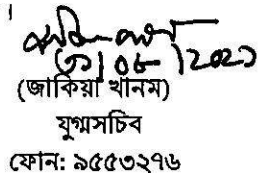 ৩১|০৮|২০২১
(জাকিয়া খানম)
যুগ্মসচিব
ফোন: ৯৫৫৩২৭৬